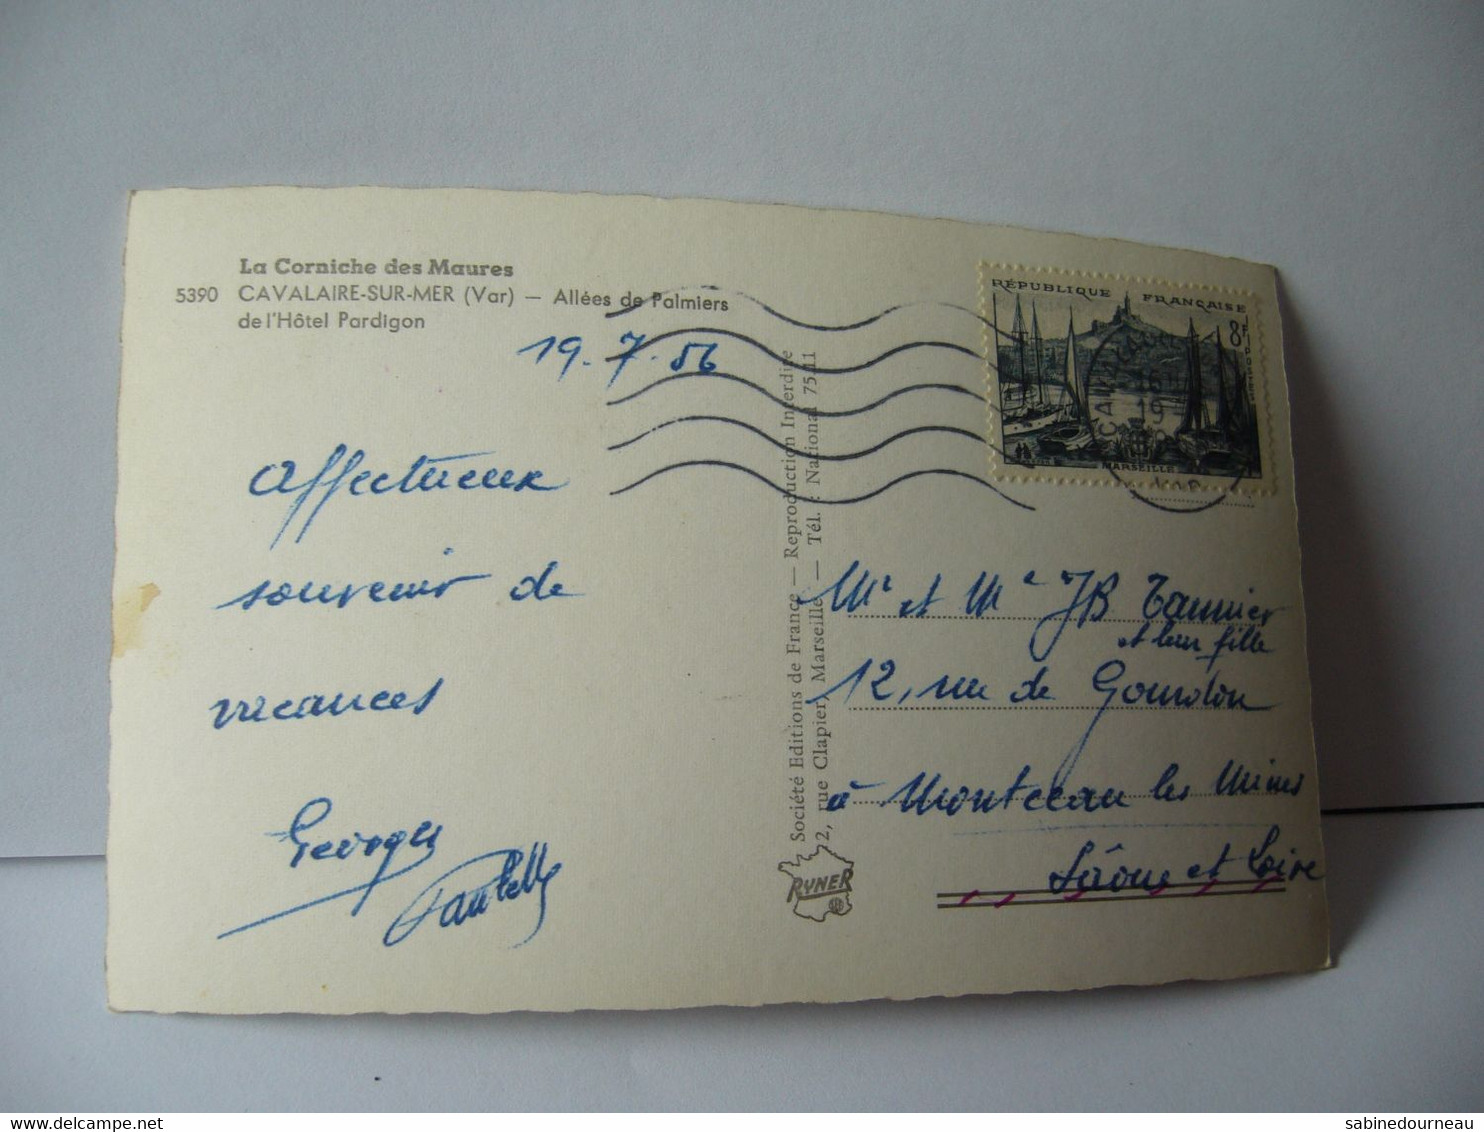 La Corniche des Maures
5390 CAVALAIRE-SUR-MER (Var) — Allées de Palmiers
de l'Hôtel Pardigon
19.7.56
Affectueux
souvenir de
vacances
Georges
Société Editions de France — Reproduction Interdite
2, rue Clapier, Marseille — Tél. : National 75-11
RYNER
RÉPUBLIQUE FRANÇAISE
8F
POSTES
MARSEILLE
19
Mr et Me JB Tannier
et leur fille
12, rue de Gourdon
à Montceau les Mines
Saône et Loire
sabinedourneau